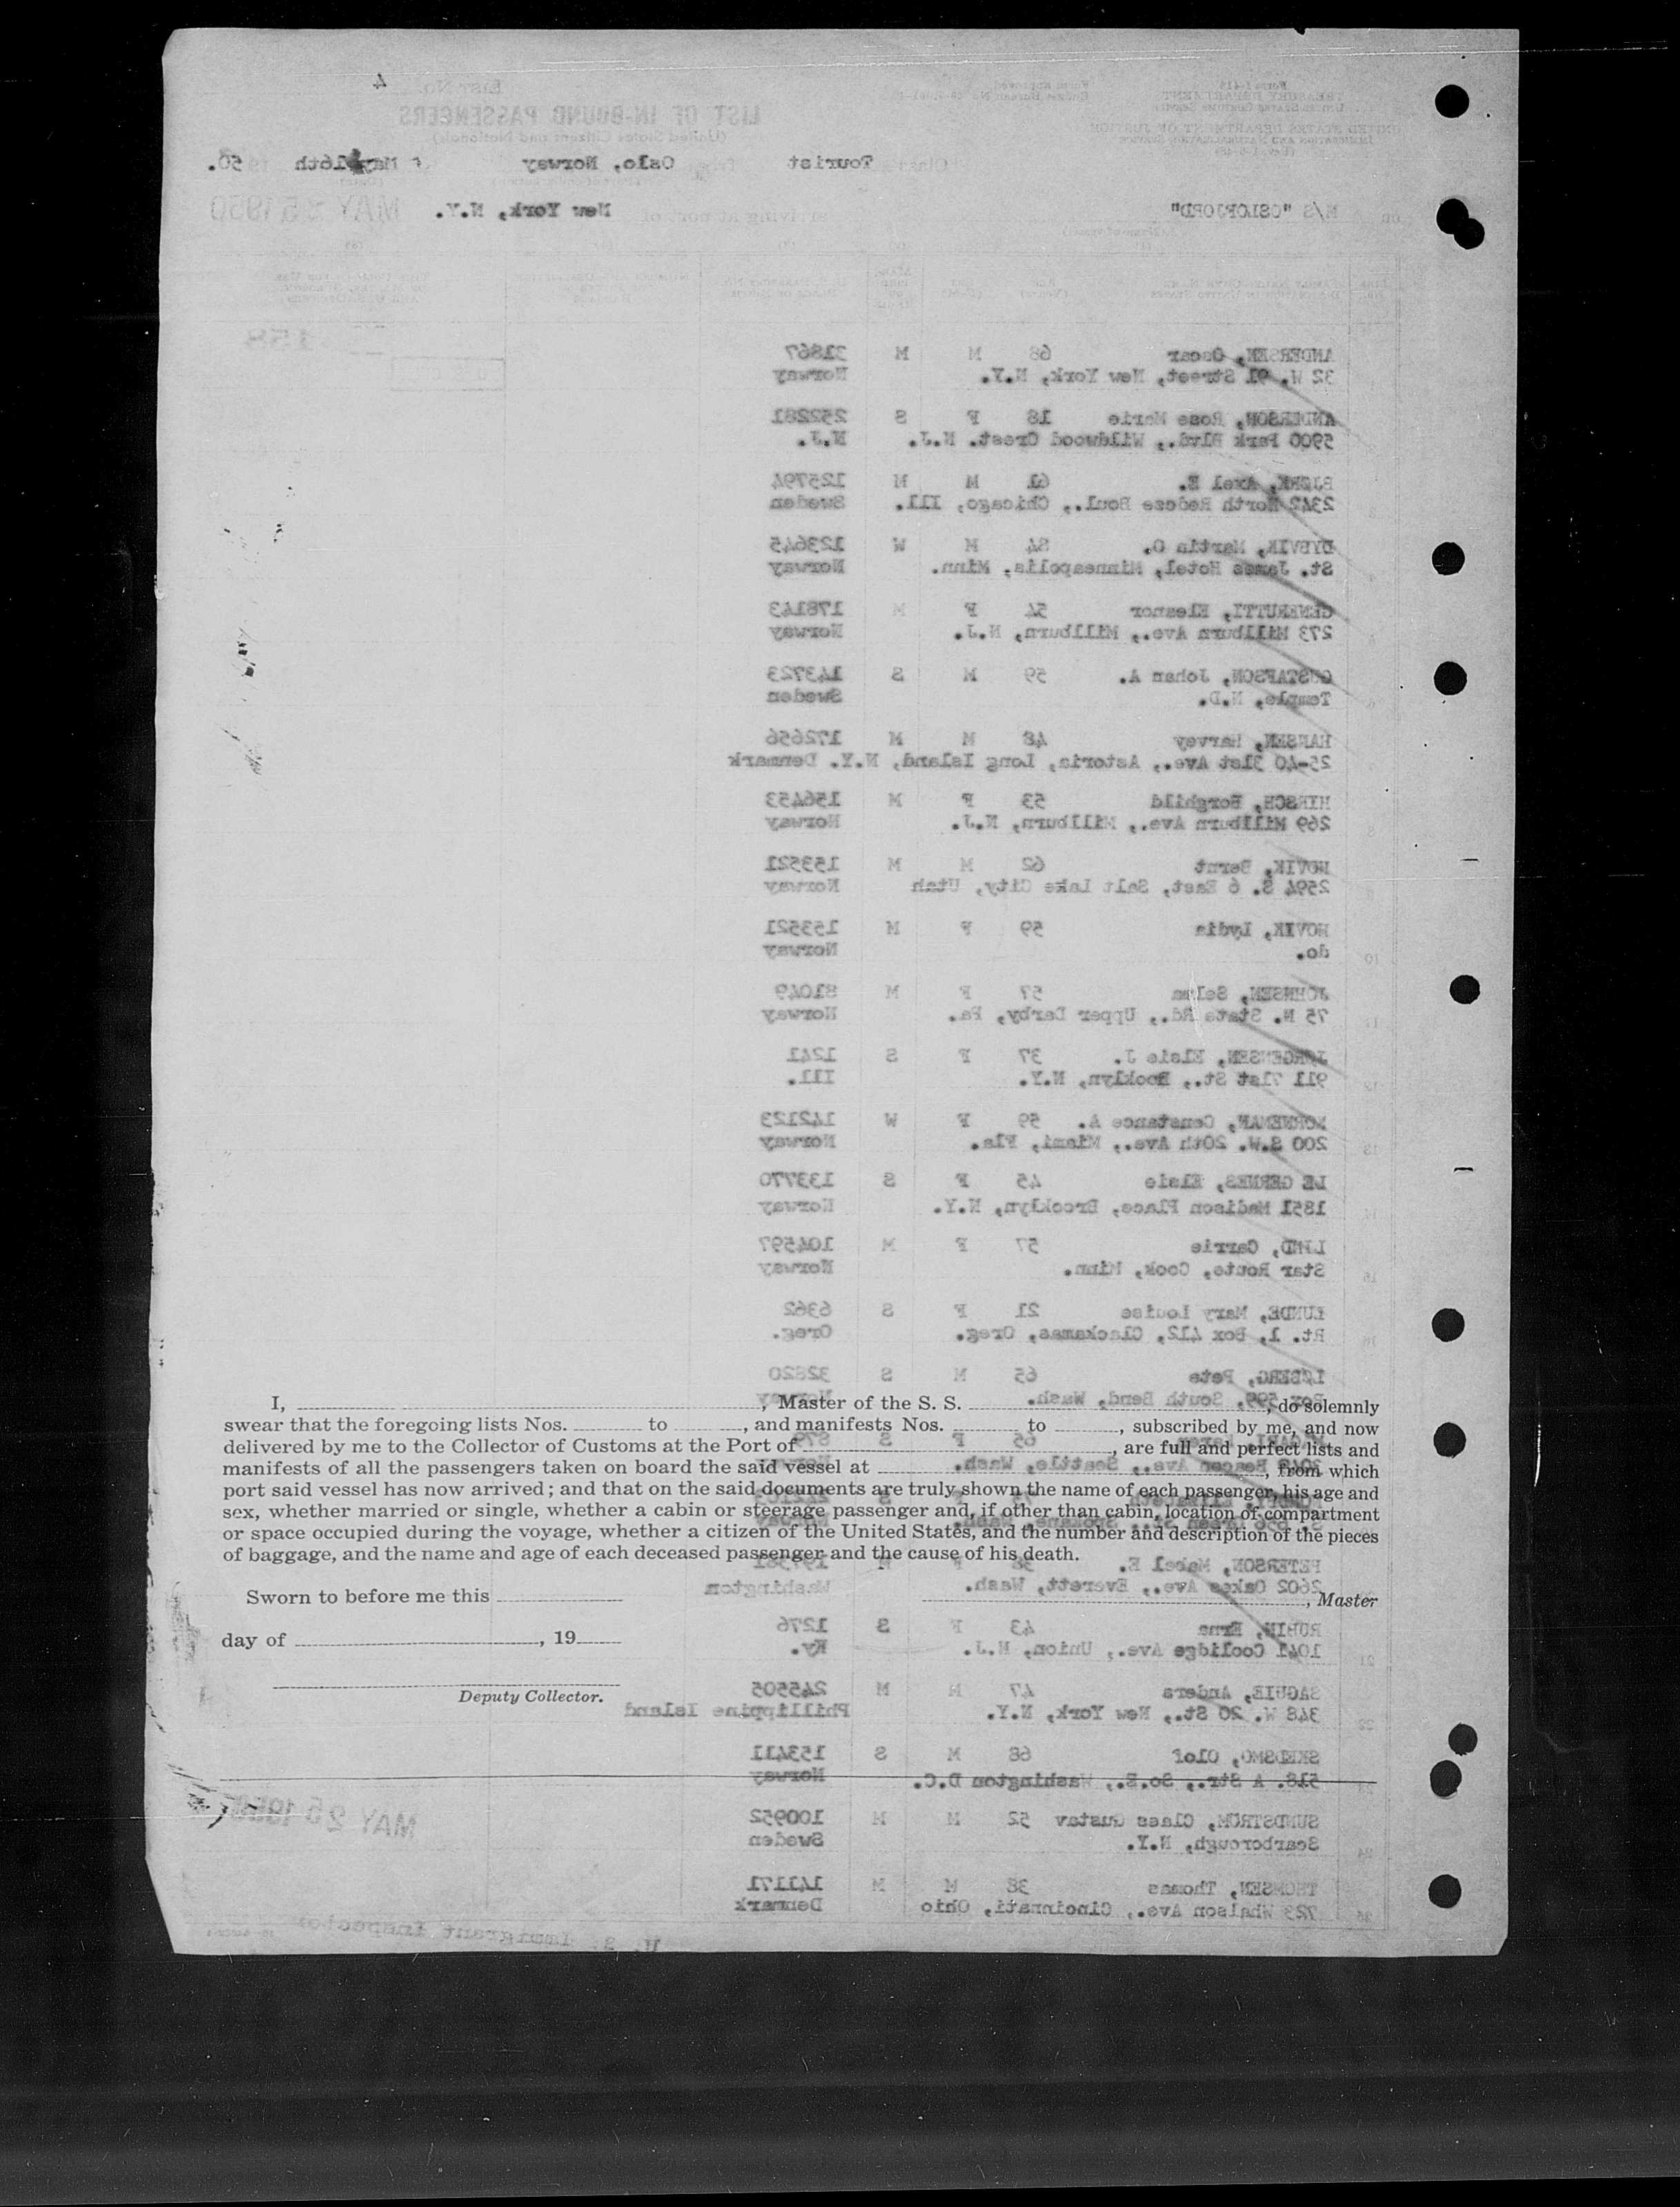 List No. 4
LIST OF IN-BOUND PASSENGERS
(United States Citizens and Nationals)
Form I-415
TREASURY DEPARTMENT
UNITED STATES DEPARTMENT OF JUSTICE
IMMIGRATION AND NATURALIZATION SERVICE
Class Tourist from Oslo, Norway, May 16th 50.
on M/S "OSLOFJORD" arriving at port of New York, N.Y. MAY 25 1950
ANDERSEN, Oscar 68 M M 31867
32 W. 91 Street, New York, N.Y. Norway
ANDERSON, Rose Marie 18 F S 252281
5900 Park Blvd., Wildwood Crest. N.J. N.J.
BJORK, Axel E. 61 M M 125794
2342 North Redese Boul., Chicago, Ill. Sweden
DYBVIK, Martin O. 84 M W 123645
St. James Hotel, Minneapolis, Minn. Norway
GENERUTTI, Eleanor 54 F M 178143
273 Millburn Ave., Millburn, N.J. Norway
GUSTAFSON, Johan A. 59 M S 143723
Temple, N.D. Sweden
HANSEN, Harvey 48 M M 172656
25-40 31st Ave., Astoria, Long Island, N.Y. Denmark
HIRSCH, Borghild 53 F M 156453
269 Millburn Ave., Millburn, N.J. Norway
HOVIK, Bernt 62 M M 153521
2594 S. 6 East, Salt Lake City, Utah Norway
HOVIK, Lydia 59 F M 153521
do. Norway
JOHNSEN, Selma 57 F M 81049
75 N. State Rd., Upper Darby, Pa. Norway
JORGENSEN, Elsie J. 37 F S 1241
911 71st St., Brooklyn, N.Y. Ill.
KORNEMAN, Constance A. 59 F W 142123
200 S.W. 20th Ave., Miami, Fla. Norway
LE GERNES, Elsie 45 F S 133770
1851 Madison Place, Brooklyn, N.Y. Norway
LIND, Carrie 57 F M 104597
Star Route, Cook, Minn. Norway
LUNDE, Mary Louise 21 F S 6362
Rt. 1, Box 412, Clackamas, Oreg. Oreg.
LØBERG, Pete 65 M S 32820
Box 599, South Bend, Wash. Norway
I, , Master of the S. S. , do solemnly
swear that the foregoing lists Nos. to , and manifests Nos. to , subscribed by me, and now
delivered by me to the Collector of Customs at the Port of , are full and perfect lists and
manifests of all the passengers taken on board the said vessel at , from which
port said vessel has now arrived; and that on the said documents are truly shown the name of each passenger, his age and
sex, whether married or single, whether a cabin or steerage passenger and, if other than cabin, location of compartment
or space occupied during the voyage, whether a citizen of the United States, and the number and description of the pieces
of baggage, and the name and age of each deceased passenger and the cause of his death.
PETERSON, Mabel E. 38 F M
2602 Oakes Ave., Everett, Wash. Washington
Sworn to before me this , Master
RUBIN, Erna 43 F S 1276
day of , 19
1041 Coolidge Ave., Union, N.J. Ky.
SAGUIE, Anders 47 M M 245505
Deputy Collector.
348 W. 20 St., New York, N.Y. Phillippine Island
SKEDSMO, Olof 68 M S 153411
518. A Str., So.E., Washington D.C. Norway
SUNDSTROM, Claes Gustav 52 M M 100952
Scarborough, N.Y. Sweden
MAY 25 1950
THOMSEN, Thomas 38 M M 141171
723 Whalson Ave., Cincinnati, Ohio Denmark
U. S. Immigrant Inspector